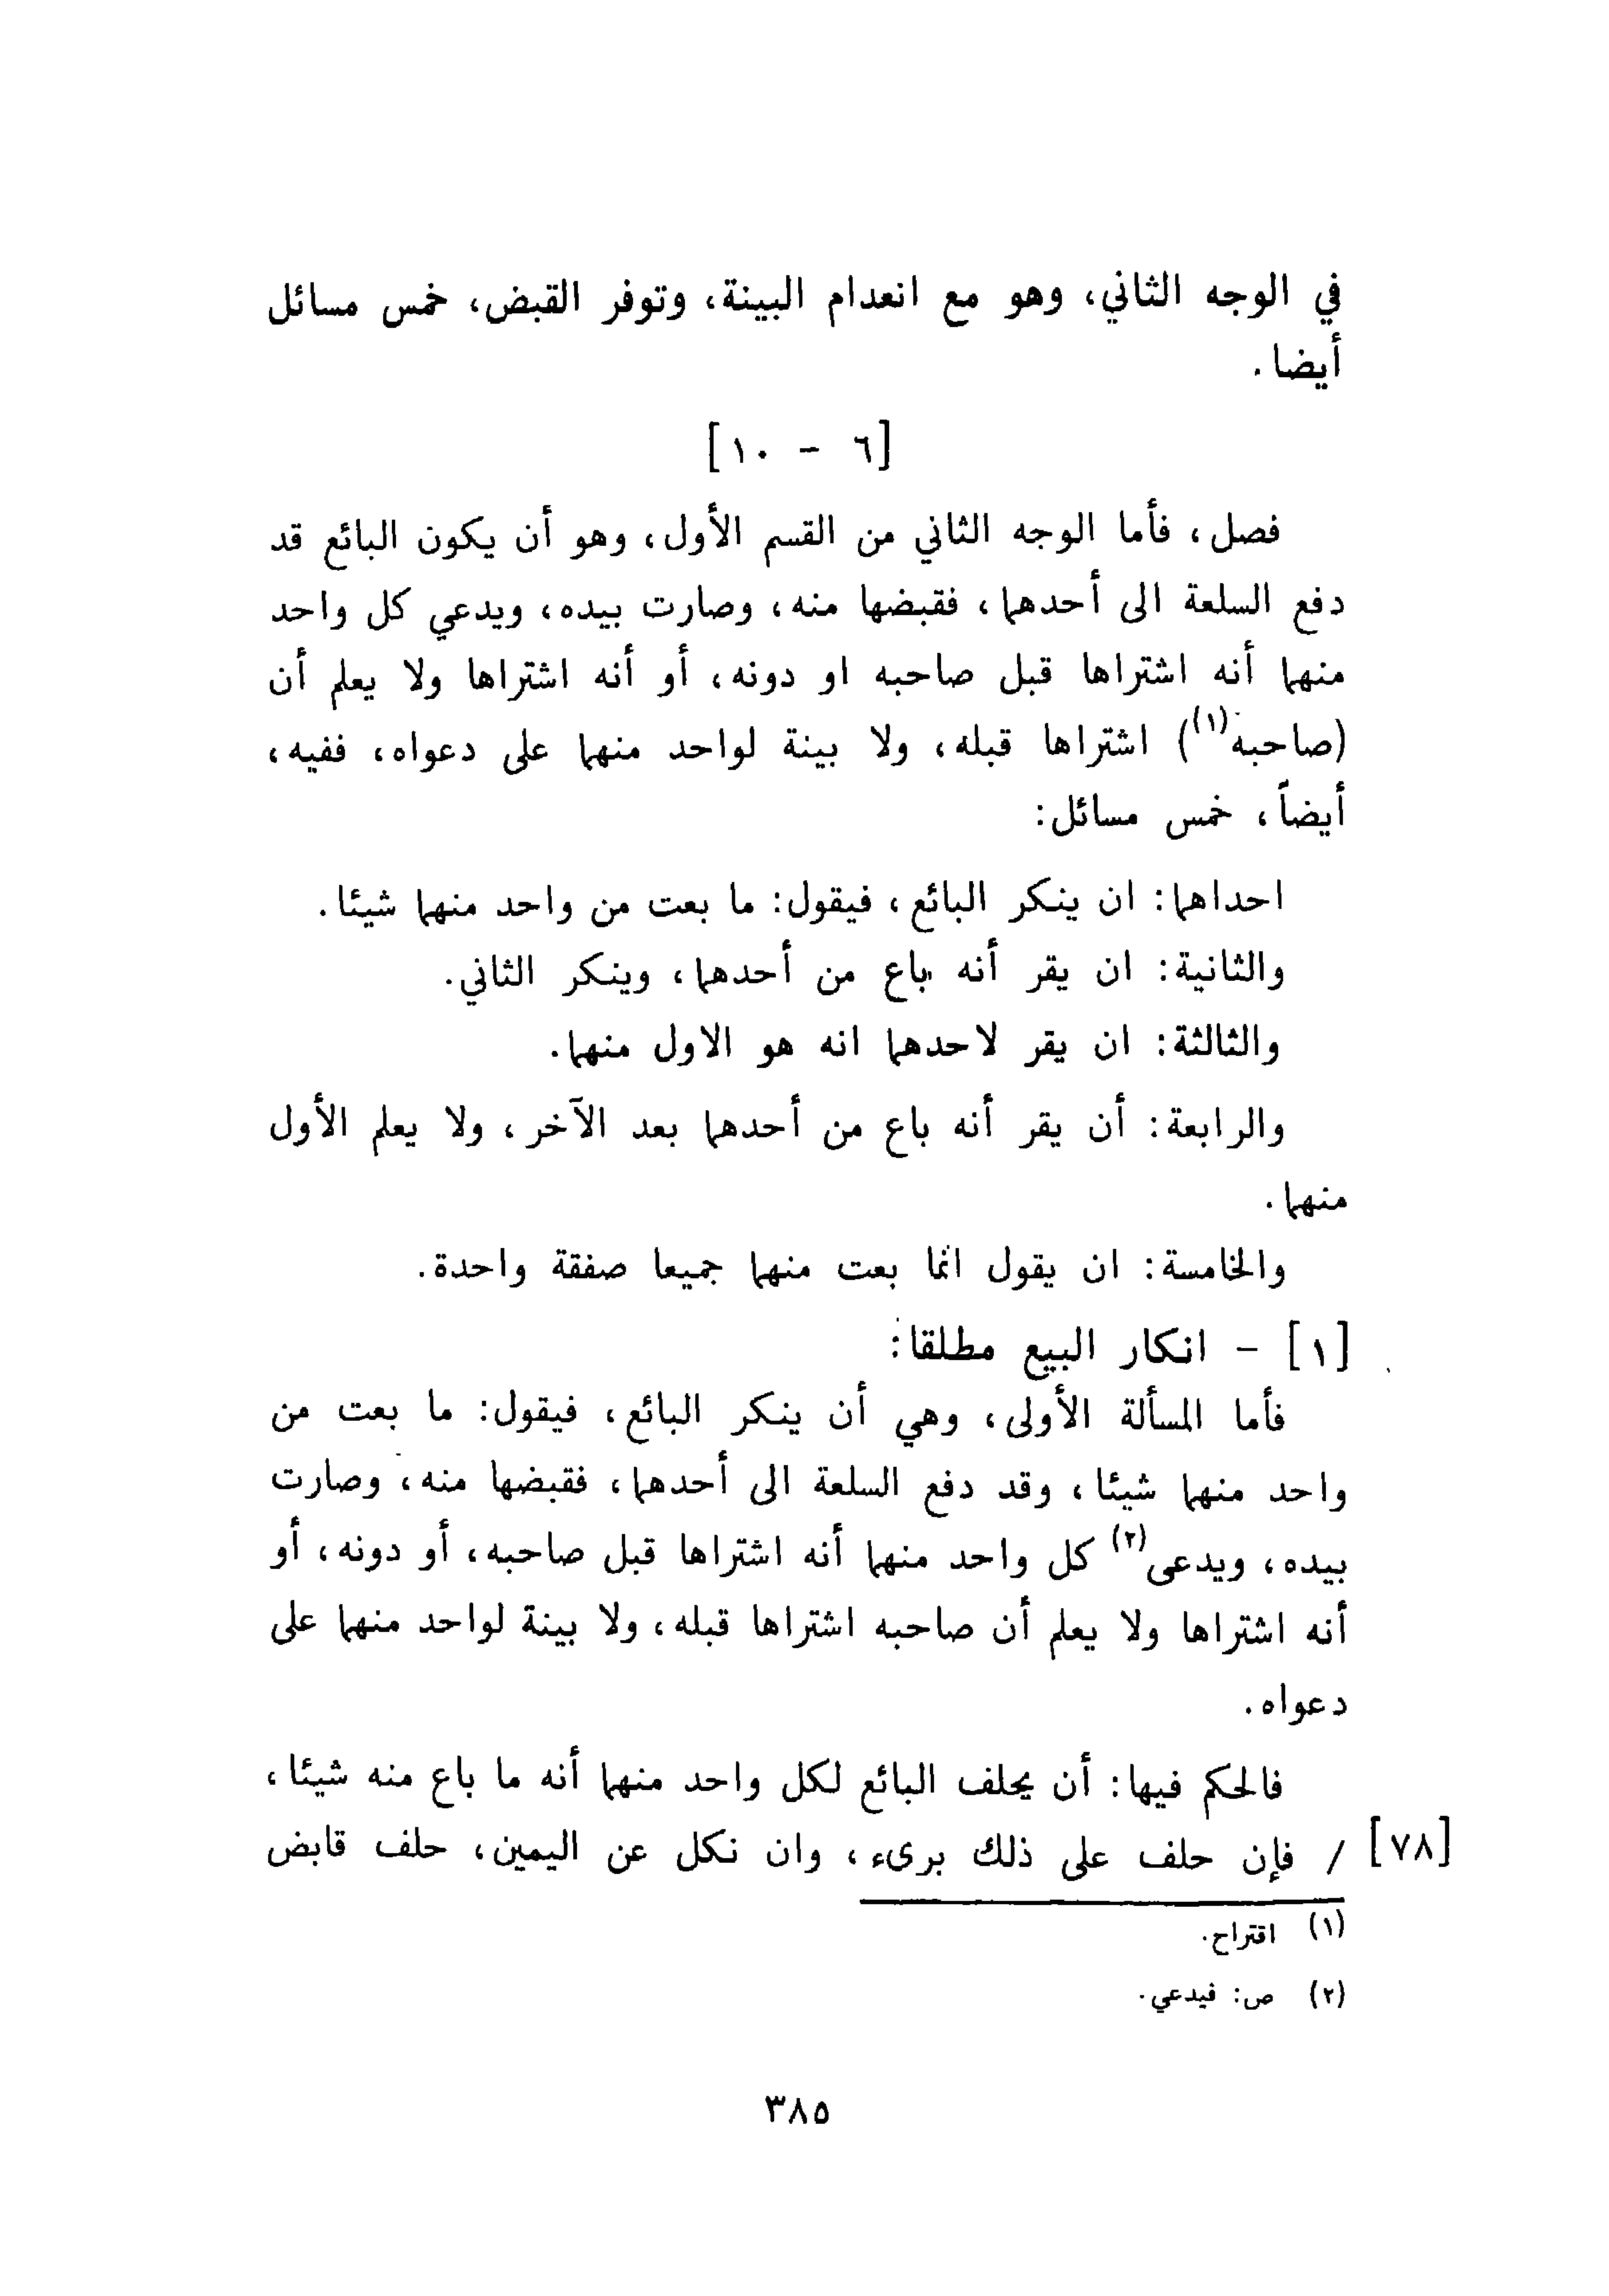 في الوجه الثاني، وهو مع انعدام البينة، وتوفر القبض، خمس مسائل
أيضا.
[٦ - ١٠]
فصل، فأما الوجه الثاني من القسم الأول، وهو أن يكون البائع قد
دفع السلعة الى أحدهما، فقبضها منه، وصارت بيده، ويدعي كل واحد
منهما أنه اشتراها قبل صاحبه او دونه، أو أنه اشتراها ولا يعلم أن
(صاحبه(١)) اشتراها قبله، ولا بينة لواحد منهما على دعواه، ففيه،
أيضاً، خمس مسائل:
احداهما: ان ينكر البائع، فيقول: ما بعت من واحد منهما شيئا.
والثانية: ان يقر أنه باع من أحدهما، وينكر الثاني.
والثالثة: ان يقر لاحدهما انه هو الاول منهما.
والرابعة: أن يقر أنه باع من أحدهما بعد الآخر، ولا يعلم الأول
منهما.
والخامسة: ان يقول انما بعت منهما جميعا صفقة واحدة.
[١] - انكار البيع مطلقا:
فأما المسألة الأولى، وهي أن ينكر البائع، فيقول: ما بعت من
واحد منهما شيئا، وقد دفع السلعة الى أحدهما، فقبضها منه، وصارت
بيده، ويدعى(٢) كل واحد منهما أنه اشتراها قبل صاحبه، أو دونه، أو
أنه اشتراها ولا يعلم أن صاحبه اشتراها قبله، ولا بينة لواحد منهما على
دعواه.
فالحكم فيها: أن يحلف البائع لكل واحد منهما أنه ما باع منه شيئا،
[٧٨] / فإن حلف على ذلك برىء، وان نكل عن اليمين، حلف قابض
(١) اقتراح.
(٢) ص: فيدعي.
٣٨٥